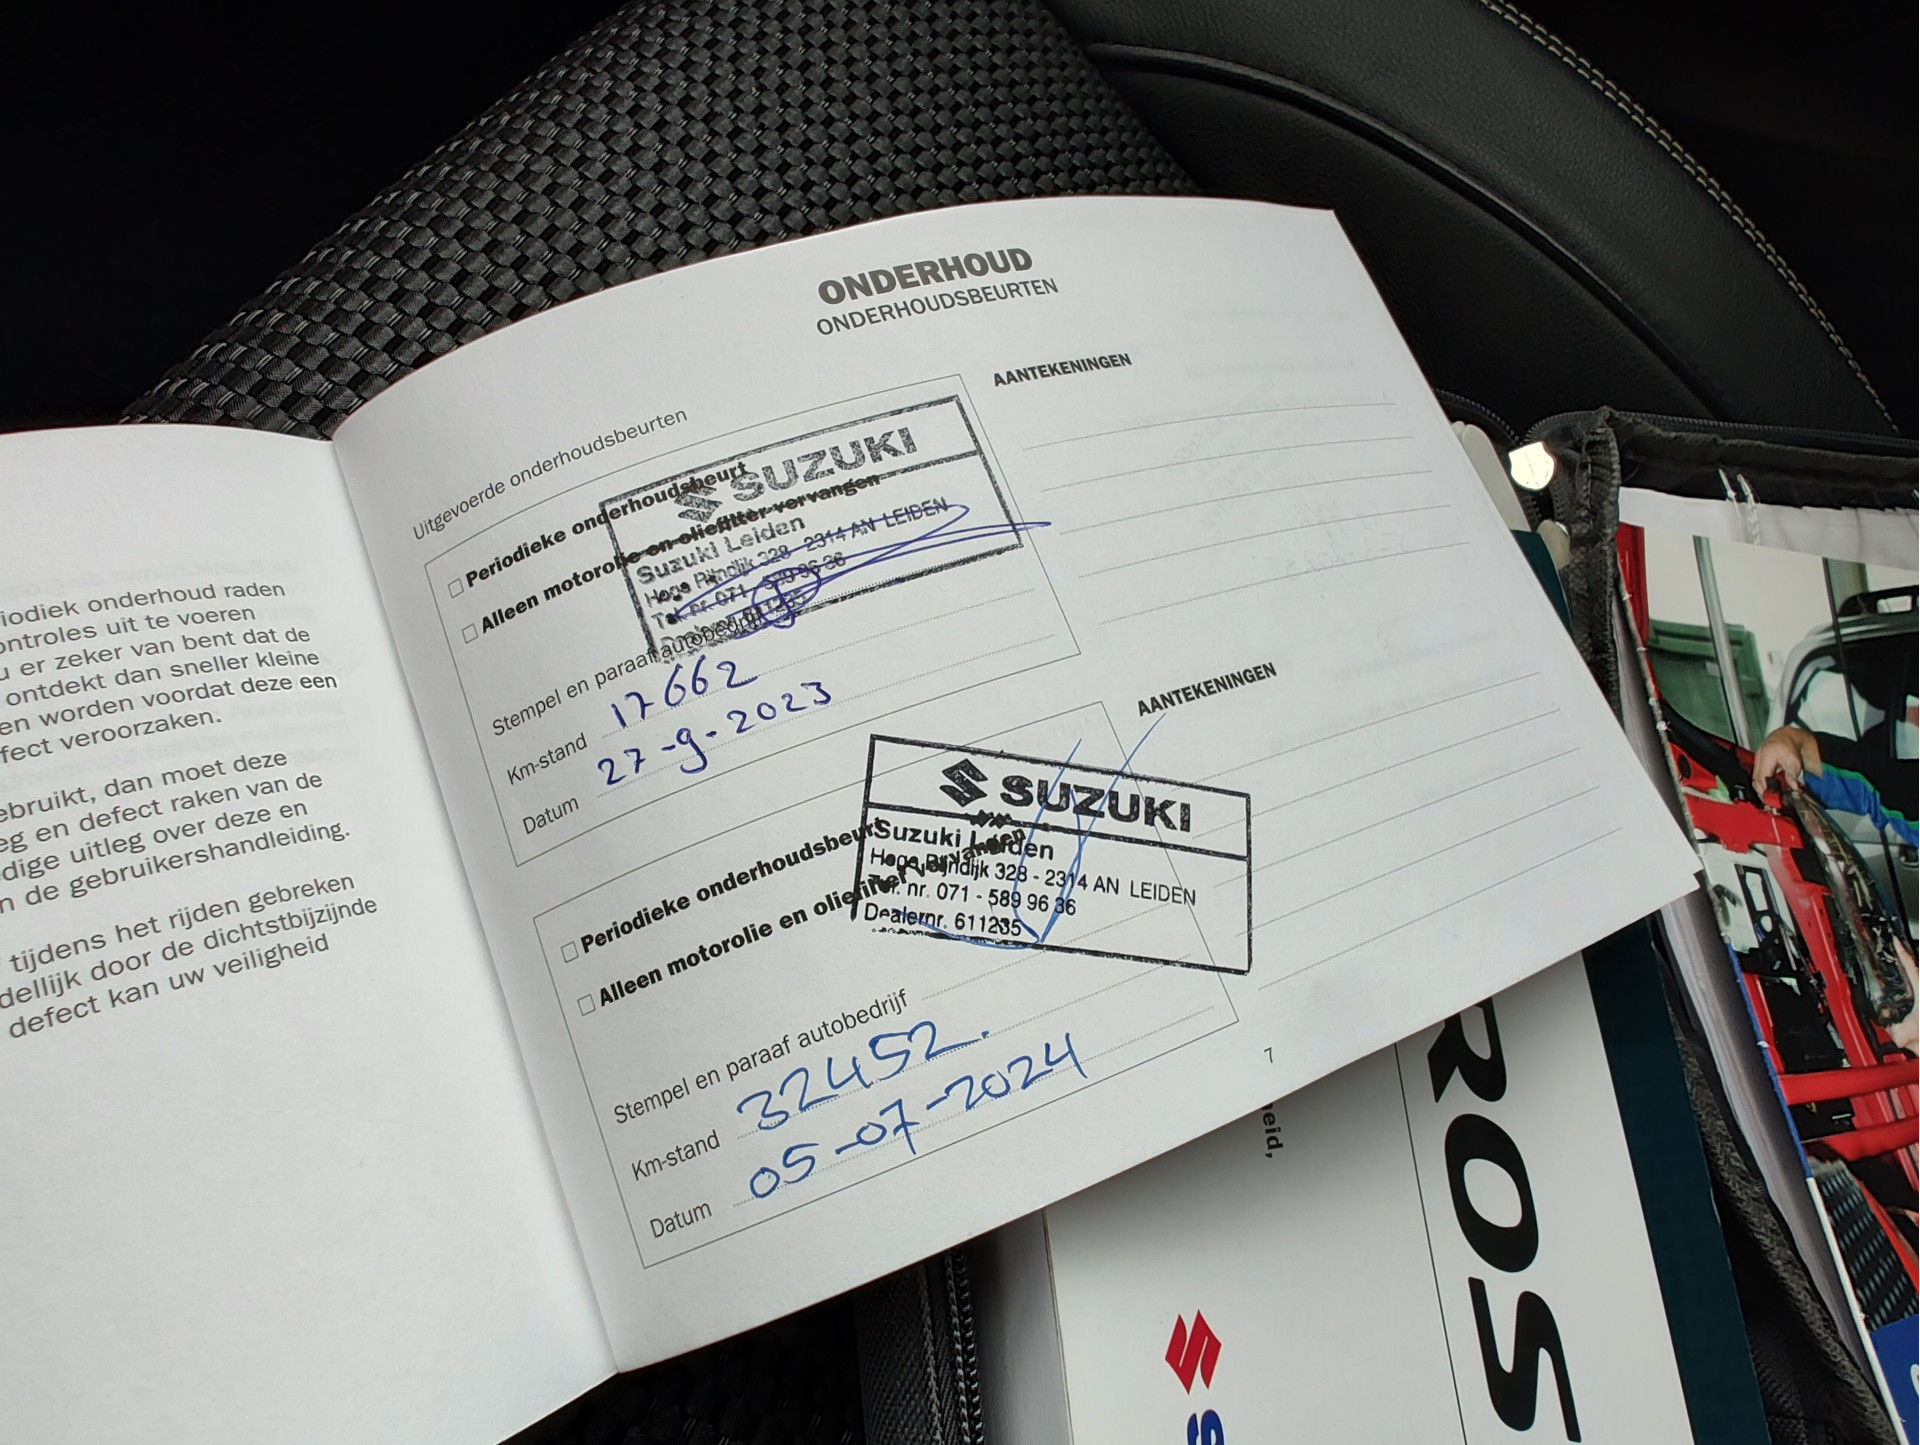 iodiek onderhoud raden
ontroles uit te voeren
u er zeker van bent dat de
ontdekt dan sneller kleine
en worden voordat deze een
fect veroorzaken.
ebruikt, dan moet deze
eg en defect raken van de
dige uitleg over deze en
n de gebruikershandleiding.
tijdens het rijden gebreken
dellijk door de dichtstbijzijnde
defect kan uw veiligheid
ONDERHOUD
ONDERHOUDSBEURTEN
Uitgevoerde onderhoudsbeurten
AANTEKENINGEN
Periodieke onderhoudsbeurt
Alleen motorolie en oliefilter vervangen
SUZUKI
Suzuki Leiden
Hoge Rijndijk 328 - 2314 AN LEIDEN
Tel. nr. 071 - 589 96 36
Dealernr. 611235
Stempel en paraaf autobedrijf
Km-stand 17662
Datum 27-9-2023
AANTEKENINGEN
Periodieke onderhoudsbeurt
Alleen motorolie en oliefilter vervangen
SUZUKI
Suzuki Leiden
Hoge Rijndijk 328 - 2314 AN LEIDEN
Tel. nr. 071 - 589 96 36
Dealernr. 611235
Stempel en paraaf autobedrijf
Km-stand 32452.
Datum 05-07-2024
7
heid,
ROSS
S